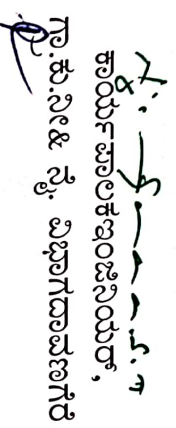 ಕಾರ್ಯಪಾಲಕ ಇಂಜಿನಿಯರ್,
ಗ್ರಾ.ಕು.ನೀ& ನೈ. ವಿಭಾಗ ದಾವಣಗೆರೆ